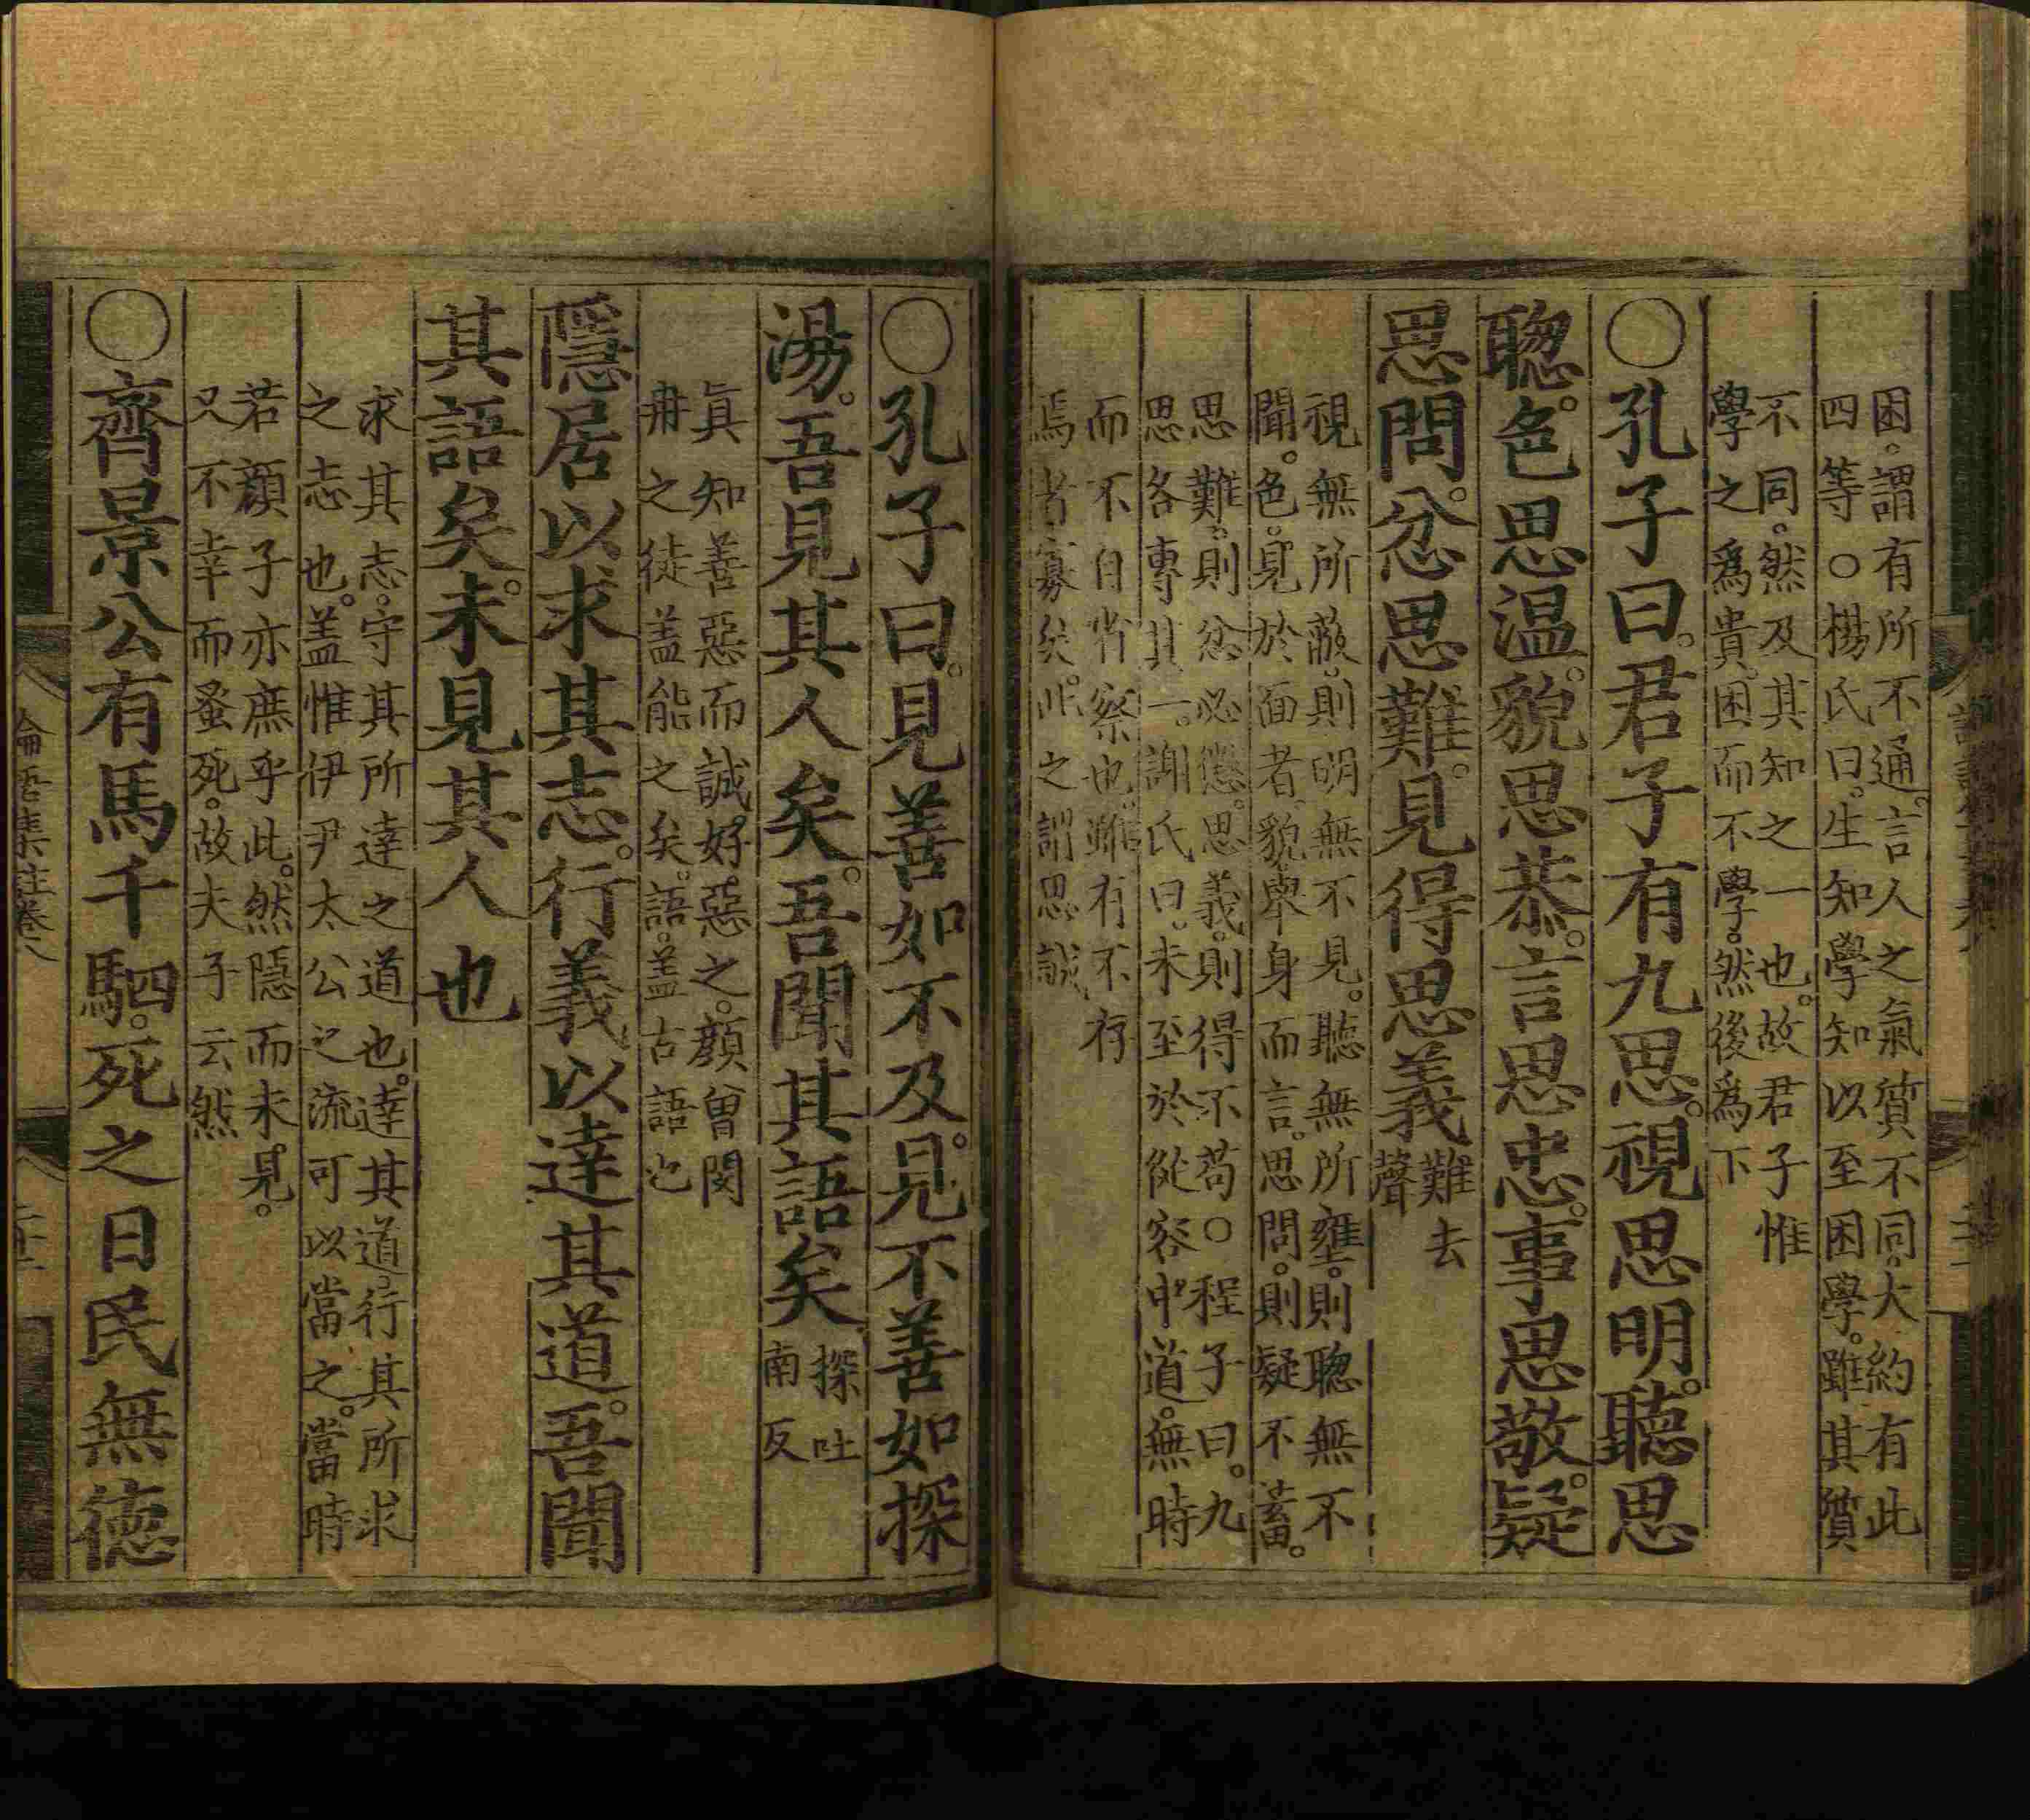 困。謂有所不通。言人之氣質不同。大約有此
四等○楊氏曰。生知學知以至困學。雖其質
不同。然及其知之一也。故君子惟
學之爲貴。困而不學。然後爲下
○孔子曰。君子有九思。視思明。聽思
聰。色思温。貌思恭。言思忠。事思敬。疑
思問。忿思難。見得思義難去
聲
視無所蔽。則明無不見。聽無所壅。則聰無不
聞。色。見於面者。貌。舉身而言。思問。則疑不蓄。
思難。則忿必懲。思義。則得不苟○程子曰。九
思各專其一。謝氏曰。未至於從容中道。無時
而不自省察也。雖有不存
焉者寡矣。此之謂思誠
○孔子曰。見善如不及。見不善如探
湯。吾見其人矣。吾聞其語矣探吐
南反
眞知善惡而誠好惡之。顔曾閔
冉之徒盖能之矣。語。盖古語也
隱居以求其志。行義以達其道。吾聞
其語矣。未見其人也
求其志。守其所達之道也。達其道。行其所求
之志也。盖惟伊尹太公之流可以當之。當時
若顔子亦庶乎此。然隱而未見。
又不幸而蚤死。故夫子云然
○齊景公有馬千駟。死之日民無德
論語集註卷八